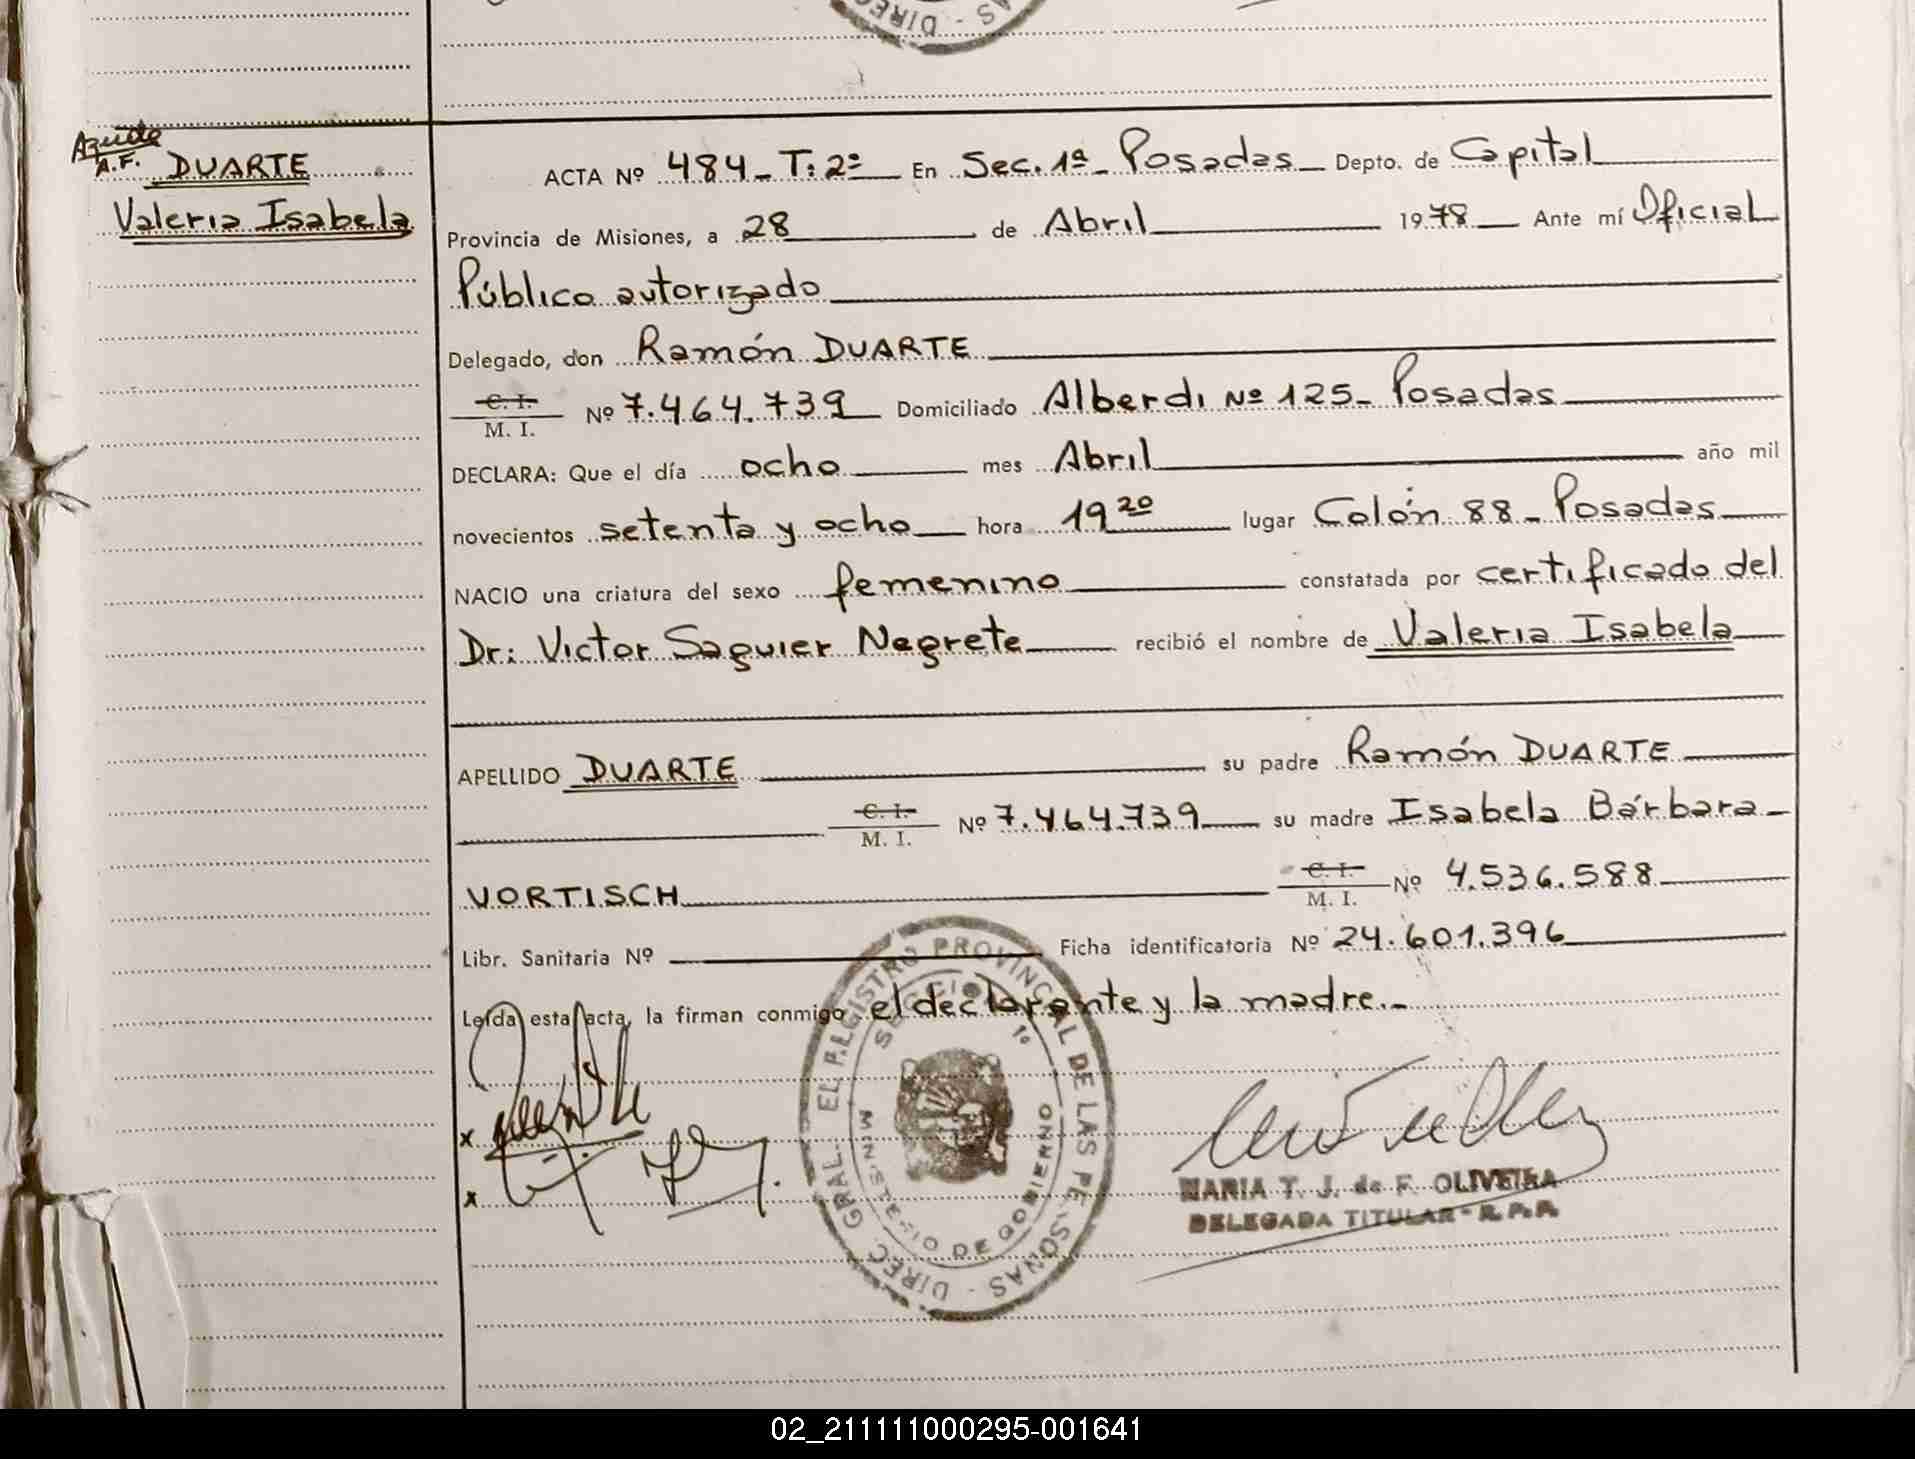 DIREC
Azucle
A.F. DUARTE
Valeria Isabela
ACTA Nº 484 - T: 2º En Sec. 1ª - Posadas Depto. de Capital
Provincia de Misiones, a 28 de Abril 1978 Ante mí Oficial
Público autorizado
Delegado, don Ramón DUARTE
C. I.
M. I. Nº 7.464.739 Domiciliado Alberdi Nº 125 - Posadas
DECLARA: Que el día ocho mes Abril año mil
novecientos setenta y ocho hora 19 20 lugar Colón 88 - Posadas
NACIO una criatura del sexo femenino constatada por certificado del
Dr: Victor Saguier Negrete recibió el nombre de Valeria Isabela
APELLIDO DUARTE su padre Ramón DUARTE
C. I.
M. I. Nº 7.464.739 su madre Isabela Bárbara
VORTISCH C. I.
M. I. Nº 4.536.588
Libr. Sanitaria Nº Ficha identificatoria Nº 24.601.396
Leída esta acta, la firman conmigo el declarante y la madre.-
x
x
DIREC. GRAL. EL REGISTRO PROVINCIAL DE LAS PERSONAS
SECCION 1º
MINISTERIO DE GOBIERNO
MARIA T. J. de F. OLIVEIRA
DELEGADA TITULAR - R.P.P.
02_211111000295-001641